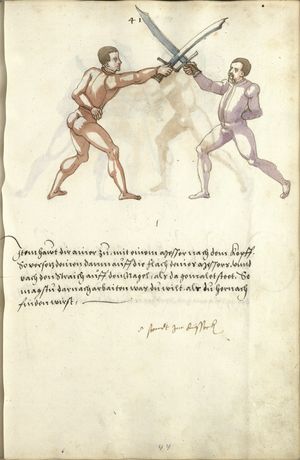 41
1
Item hawt dir ainer zu mit ainem messer nach dem kopff.
So versetz denen dann auff die flach deiner messers. Vnnd
vach den straich auff den Nagel, als da gemalet steet. So
magstu darnach arbaiten was du wilt als du hernach
finden wirst.
44